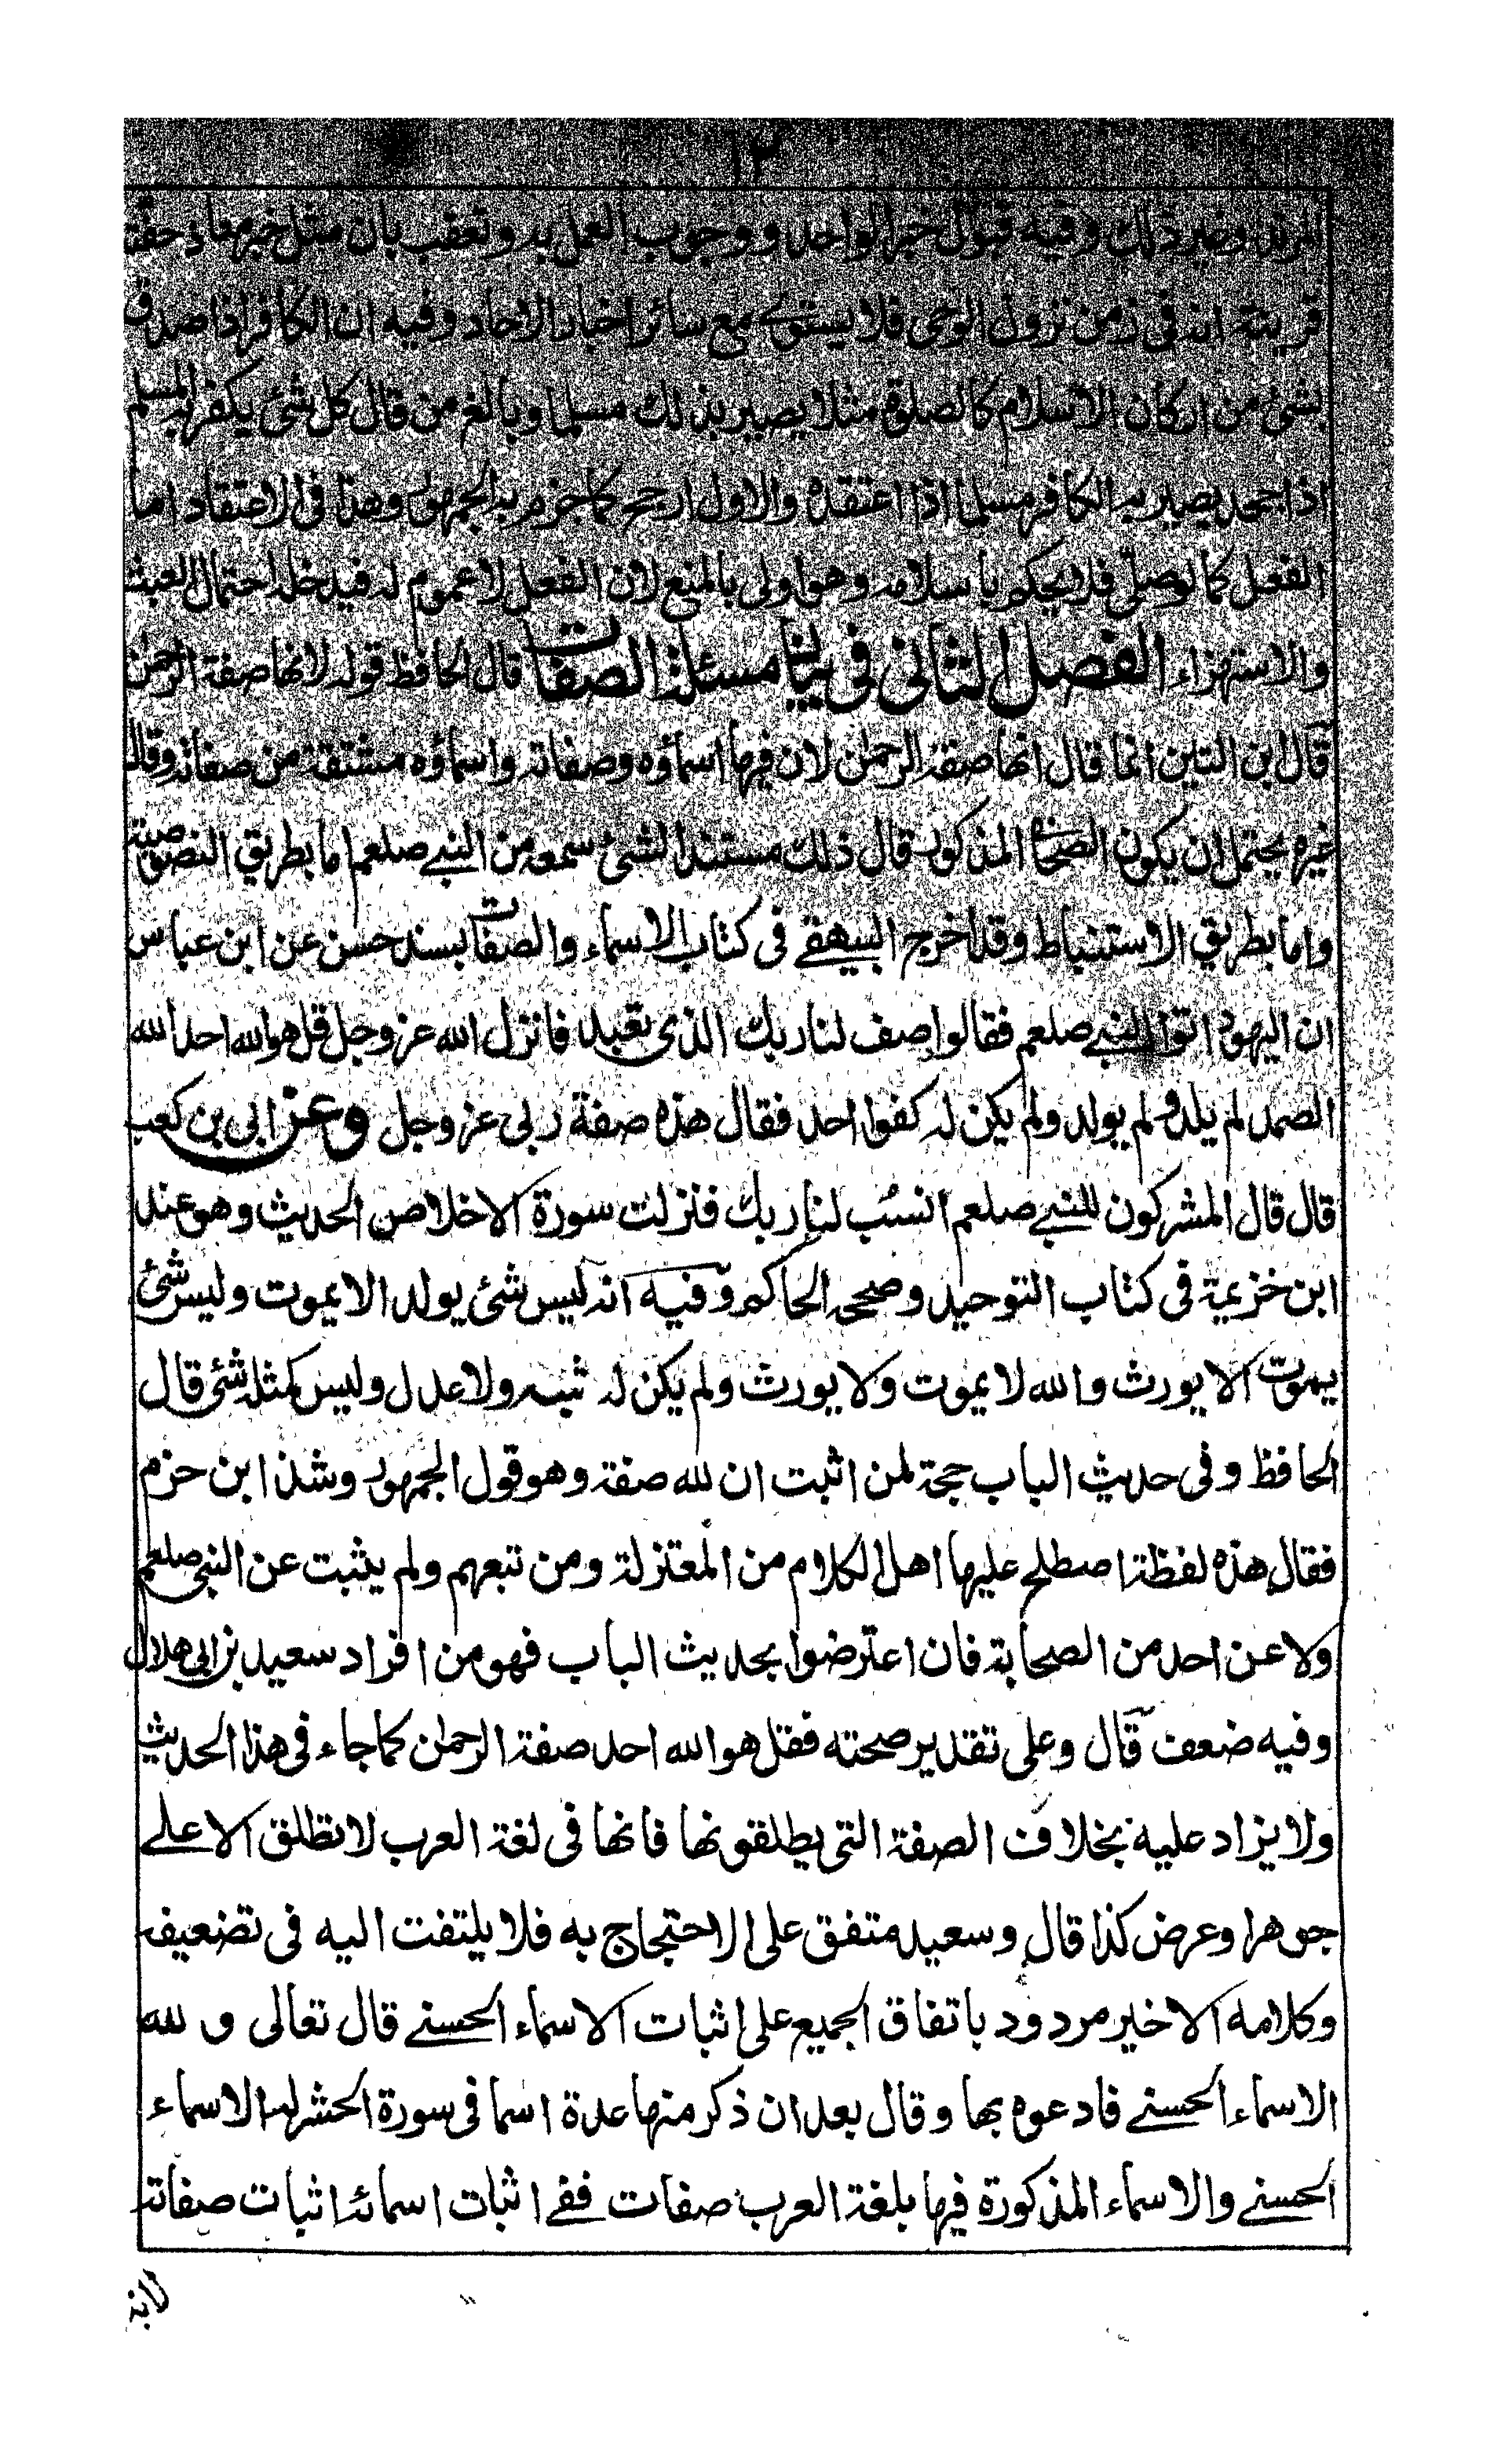 ١٢
المرتد وغير ذلك وفيه قبول خبر الواحد ووجوب العمل به وتعقب بان مثل خبر معاذ حفته
قرينة انه فى زمن نزول الوحى فلا يستوى مع سائر اخبار الاحاد وفيه ان الكافر اذا صدق
بشئ من اركان الاسلام كالصلوة مثلا يصير بذلك مسلما وبالغ من قال كل شئ يكفر به المسلم
اذا جحد يصير به الكافر مسلما اذا اعتقده والاول ارجح كما جزم به الجمهور وهذا فى الاعتقاد اما
الفعل كما لو صلّى فلا يحكم باسلامه وهو اولى بالمنع لان الفعل لا عموم له فيدخله احتمال العبث
والاستهزاء الفصل الثانى فى بيان مسئلة الصفات قال الحافظ قوله لانها صفة الرحمن
قال ابن التين انما قال انها صفة الرحمن لان فيها اسماؤه وصفاته واسماؤه مشتقة من صفاته وقال
غيره يحتمل ان يكون الصحابى المذكور قال ذلك مستندا لشئ سمعه من النبى صلعم اما بطريق النصوصية
واما بطريق الاستنباط وقد اخرج البيهقى فى كتاب الاسماء والصفات بسند حسن عن ابن عباس
ان اليهود اتوا النبى صلعم فقالوا صف لنا ربك الذى تعبد فانزل الله عز وجل قل هو الله احد الله
الصمد لم يلد ولم يولد ولم يكن له كفوا احد فقال هذه صفة ربى عز وجل وعن ابى بن كعب
قال قال المشركون للنبى صلعم انسُب لنا ربك فنزلت سورة الاخلاص الحديث وهو عند
ابن خزيمة فى كتاب التوحيد وصححه الحاكم وفيه انه ليس شئ يولد الا يموت وليس شئ
يموت الا يورث والله لا يموت ولا يورث ولم يكن له شبه ولا عدل وليس كمثله شئ قال
الحافظ وفى حديث الباب حجة لمن اثبت ان لله صفة وهو قول الجمهور وشذ ابن حزم
فقال هذه لفظة اصطلح عليها اهل الكلام من المعتزلة ومن تبعهم ولم يثبت عن النبى صلعم
ولا عن احد من الصحابة فان اعترضوا بحديث الباب فهو من افراد سعيد بن ابى هلال
وفيه ضعف قال وعلى تقدير صحته فقل هو الله احد صفة الرحمن كما جاء فى هذا الحديث
ولا يزاد عليه بخلاف الصفة التى يطلقونها فانها فى لغة العرب لا تطلق الا على
جوهر او عرض كذا قال وسعيد متفق على الاحتجاج به فلا يلتفت اليه فى تضعيفه
وكلامه الاخير مردود باتفاق الجميع على اثبات الاسماء الحسنى قال تعالى و لله
الاسماء الحسنى فادعوه بها وقال بعد ان ذكر منها عدة اسما فى سورة الحشر له الاسماء
الحسنى والاسماء المذكورة فيها بلغة العرب صفات ففى اثبات اسمائه اثبات صفاته
لانه